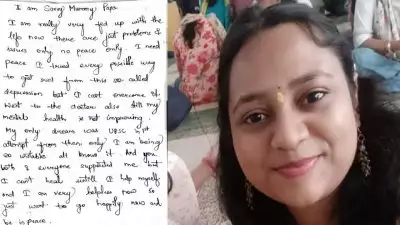 I am Sorry Mummy Papa
I am really very fed up with the
life now there are just problems &
issues only no peace only. I need
peace I tried every possible way
to get rid from this so called
depression but I cant overcome it
Went to the doctor also still my
mental health is not improving
My only dream was UPSC 1st
attempt from then only I am being
so unstable all knows it. And you
both & everyone supported me but
I can't heal until I help myself
and I am very helpless now so
just want to go happily now and
be in peace.